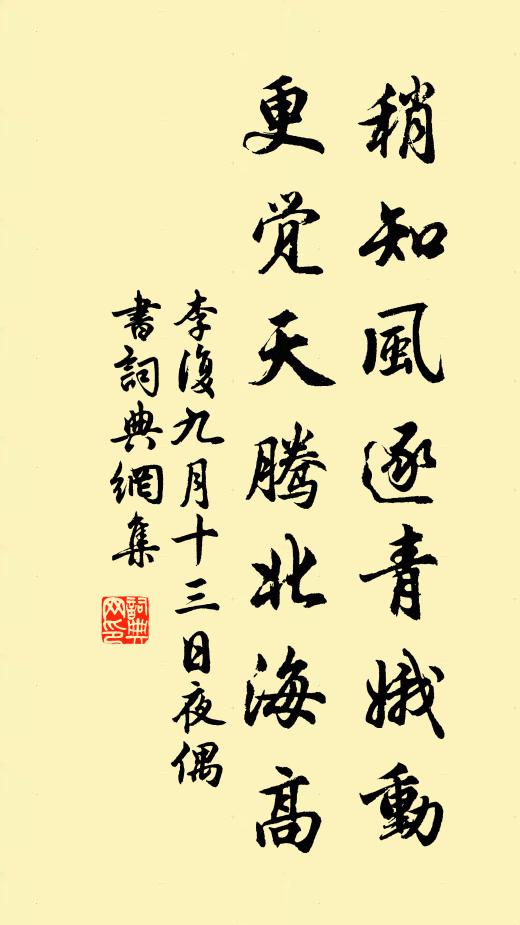 稍知風逐青娥動
更觉天腾北海高
李復九月十三日夜偶
書詞典網集
詞典
网印